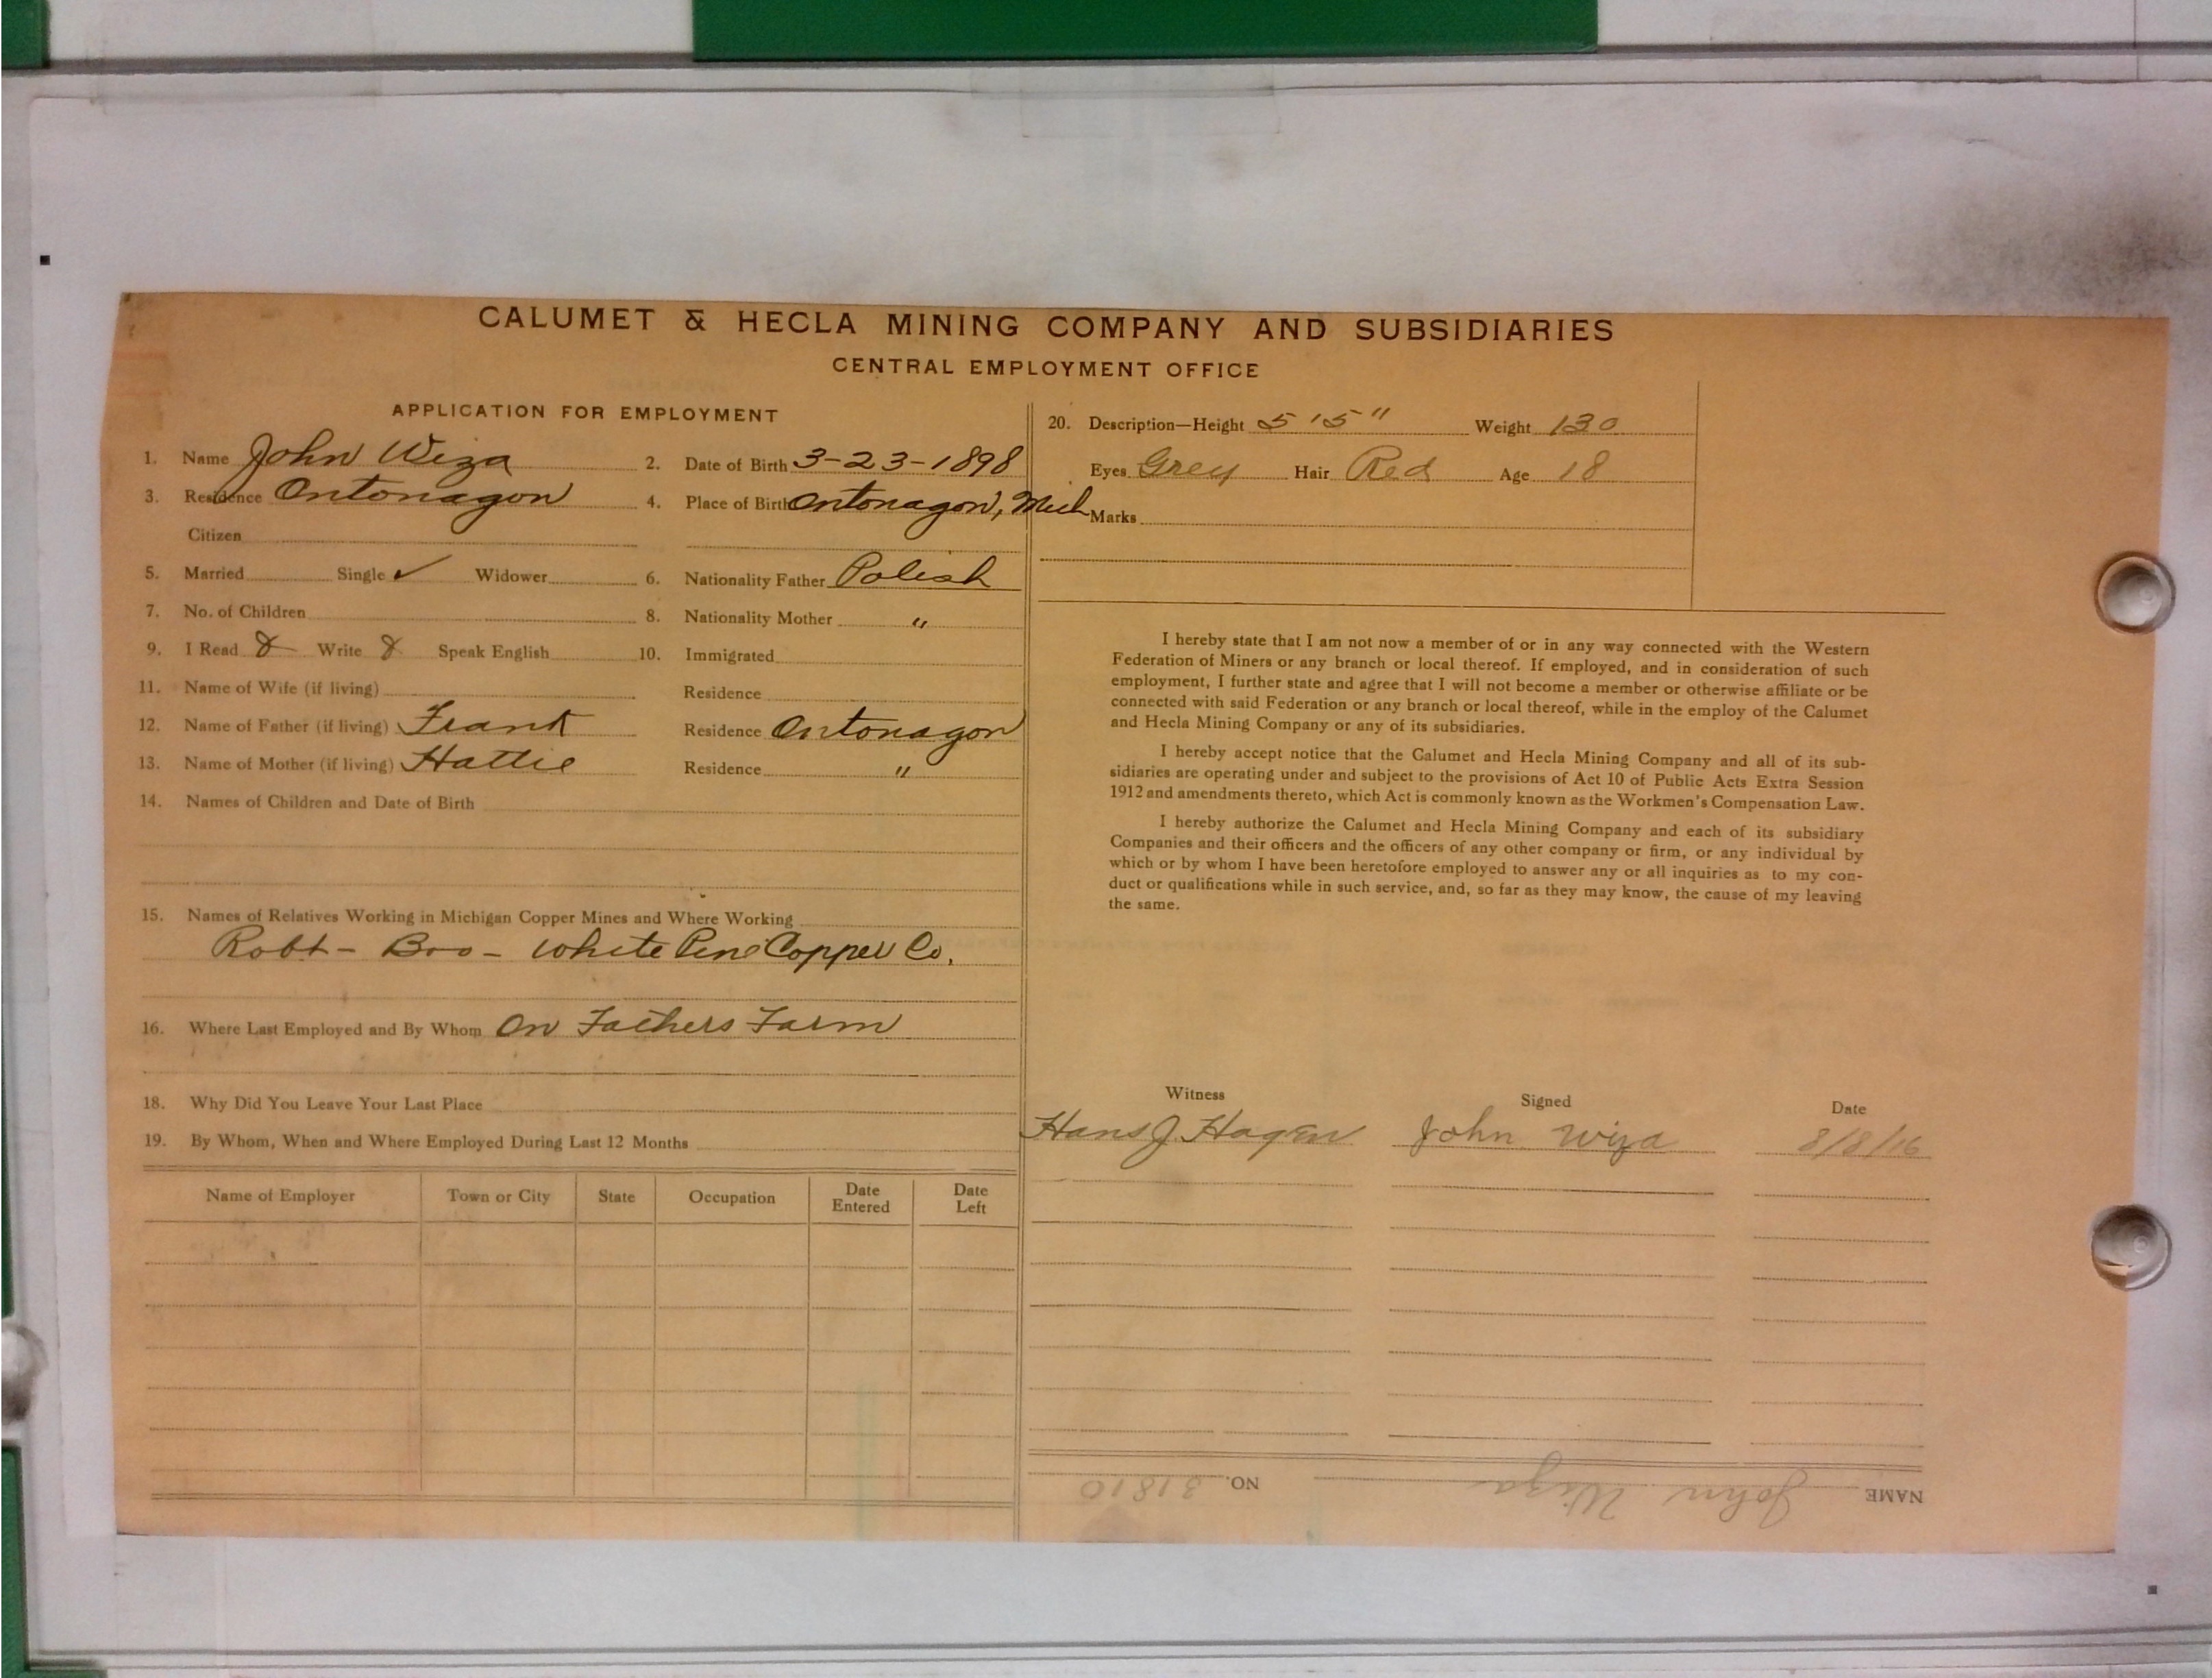 CALUMET & HECLA MINING COMPANY AND SUBSIDIARIES
CENTRAL EMPLOYMENT OFFICE
APPLICATION FOR EMPLOYMENT
1. Name John Wiza 2. Date of Birth 3-23-1898
3. Residence Ontonagon 4. Place of Birth Ontonagon, Mich
Citizen
5. Married Single ✓ Widower 6. Nationality Father Polish
7. No. of Children 8. Nationality Mother "
9. I Read & Write & Speak English 10. Immigrated
11. Name of Wife (if living) Residence
12. Name of Father (if living) Frank Residence Ontonagon
13. Name of Mother (if living) Hattie Residence "
14. Names of Children and Date of Birth
15. Names of Relatives Working in Michigan Copper Mines and Where Working
Robt - Bro - White Pine Copper Co.
16. Where Last Employed and By Whom On Fathers Farm
18. Why Did You Leave Your Last Place
19. By Whom, When and Where Employed During Last 12 Months
Name of Employer Town or City State Occupation Date Entered Date Left
20. Description—Height 5'5" Weight 130
Eyes Grey Hair Red Age 18
Marks
I hereby state that I am not now a member of or in any way connected with the Western
Federation of Miners or any branch or local thereof. If employed, and in consideration of such
employment, I further state and agree that I will not become a member or otherwise affiliate or be
connected with said Federation or any branch or local thereof, while in the employ of the Calumet
and Hecla Mining Company or any of its subsidiaries.
I hereby accept notice that the Calumet and Hecla Mining Company and all of its sub-
sidiaries are operating under and subject to the provisions of Act 10 of Public Acts Extra Session
1912 and amendments thereto, which Act is commonly known as the Workmen's Compensation Law.
I hereby authorize the Calumet and Hecla Mining Company and each of its subsidiary
Companies and their officers and the officers of any other company or firm, or any individual by
which or by whom I have been heretofore employed to answer any or all inquiries as to my con-
duct or qualifications while in such service, and, so far as they may know, the cause of my leaving
the same.
Witness Signed Date
Hans J. Hagen John Wiza 8/8/16
NAME John Wiza NO. 31810